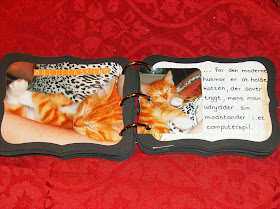 ... for den moderne
husmor er at holde
katten, der sover
trygt, mens man
udrydder sin
modstander i et
computerspil.